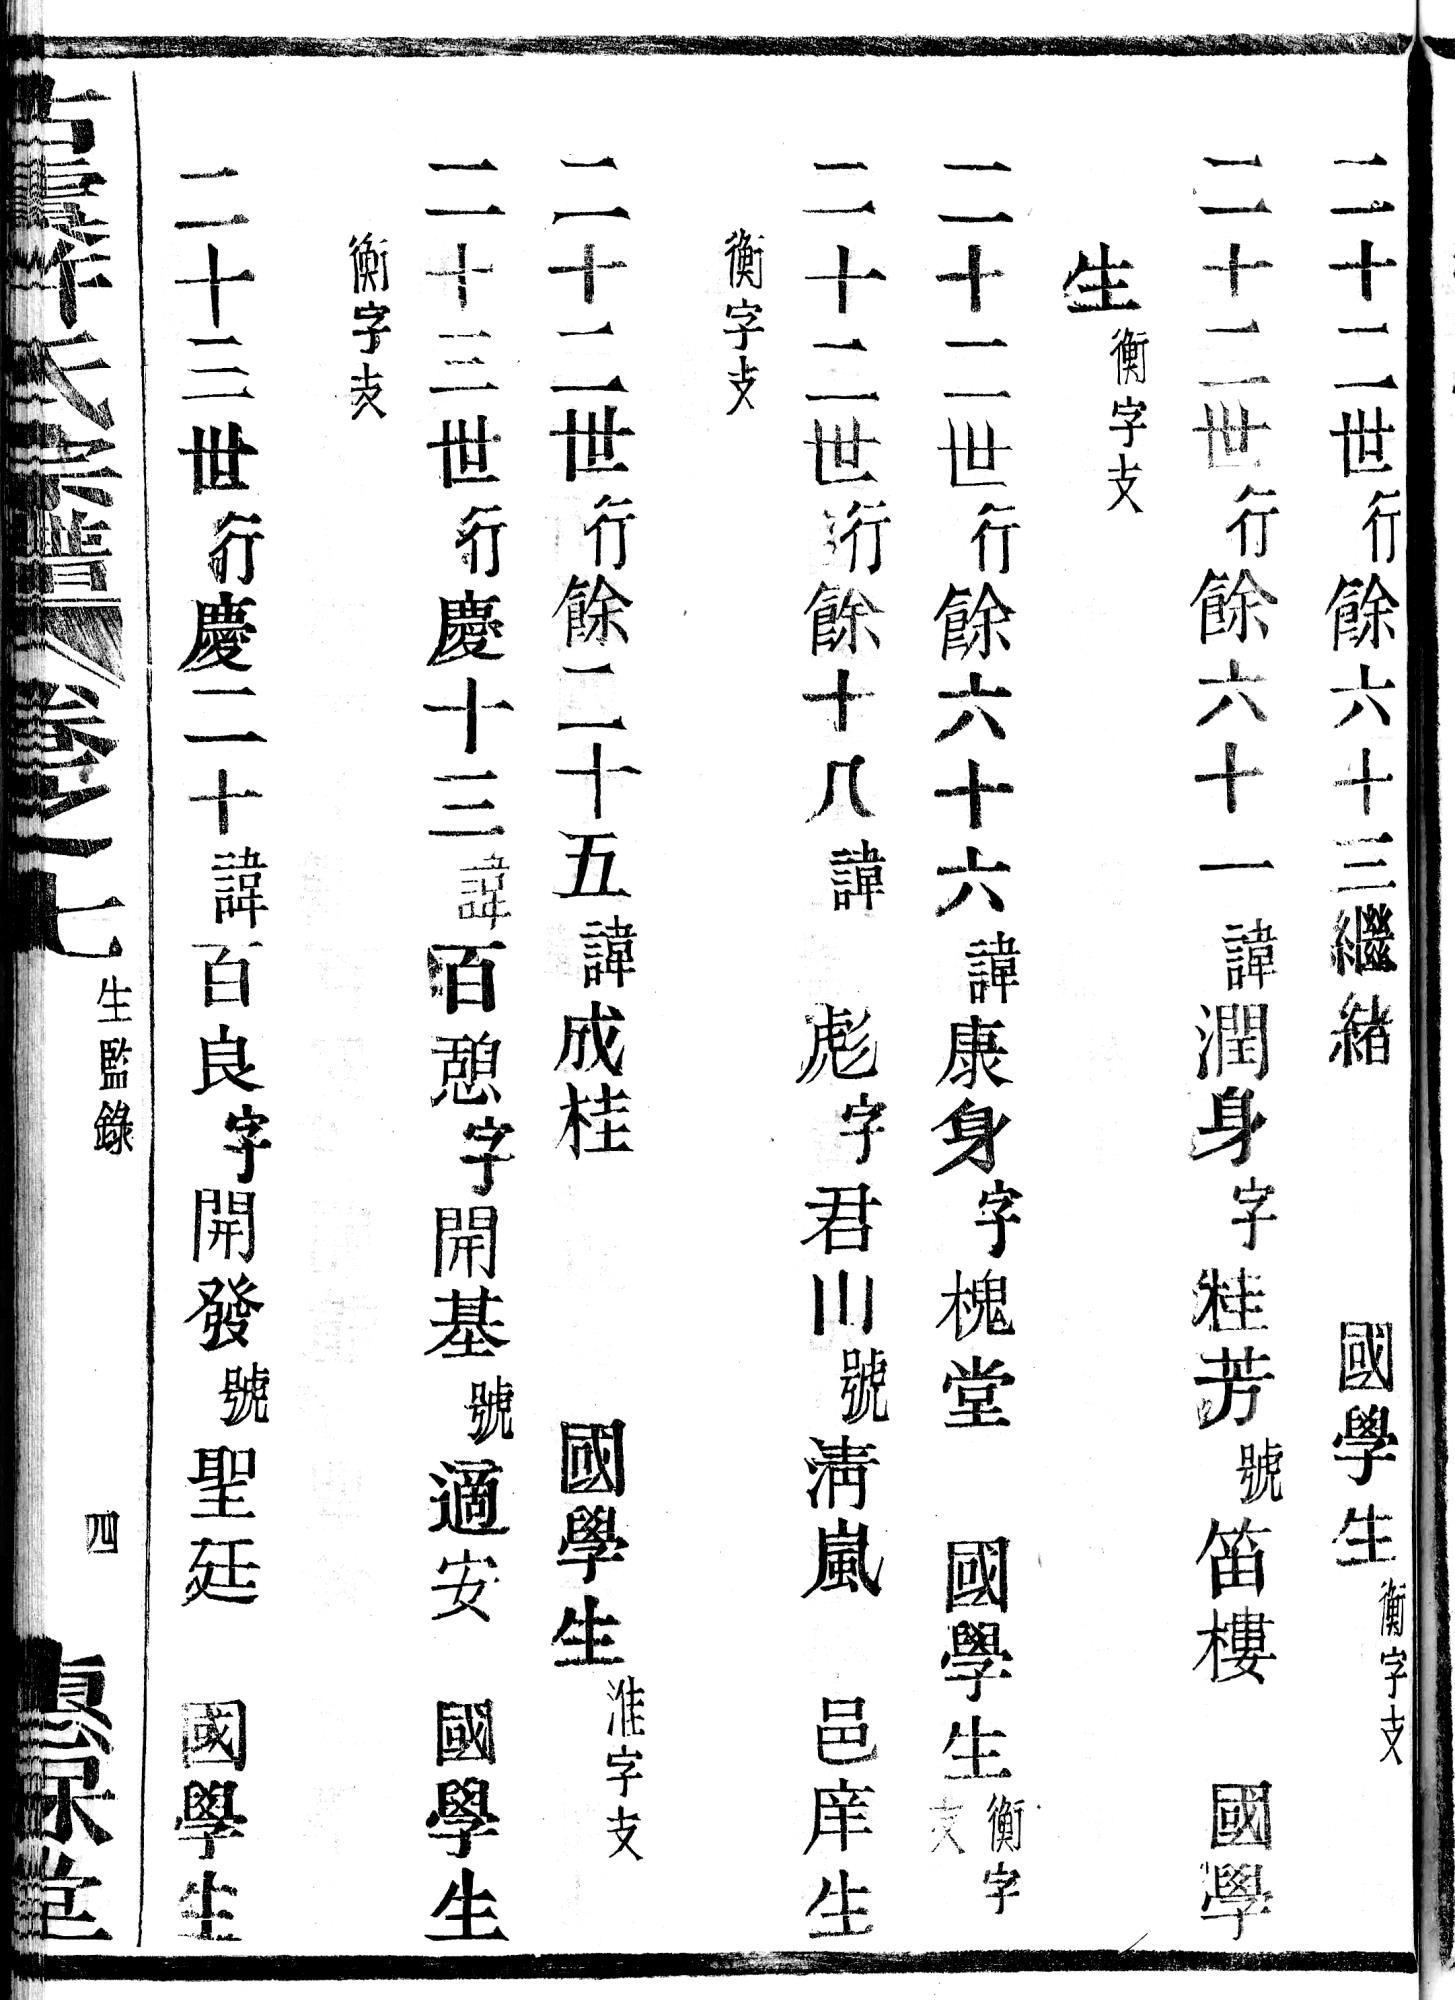 二十二世行餘六十三繼緒 國學生衡字支
二十二世行餘六十一諱潤身字桂芳號笛樓 國學
生衡字支
二十二世行餘六十六諱康身字槐堂 國學生衡字支
二十二世行餘十八諱 彪字君山號淸嵐 邑庠生
衡字支
二十二世行餘二十五諱成桂 國學生淮字支
二十三世行慶十三諱百憩字開基號適安 國學生
衡字支
二十三世行慶二十諱百良字開發號聖廷 國學生
氏宗譜 卷之七 生監錄 四 堂